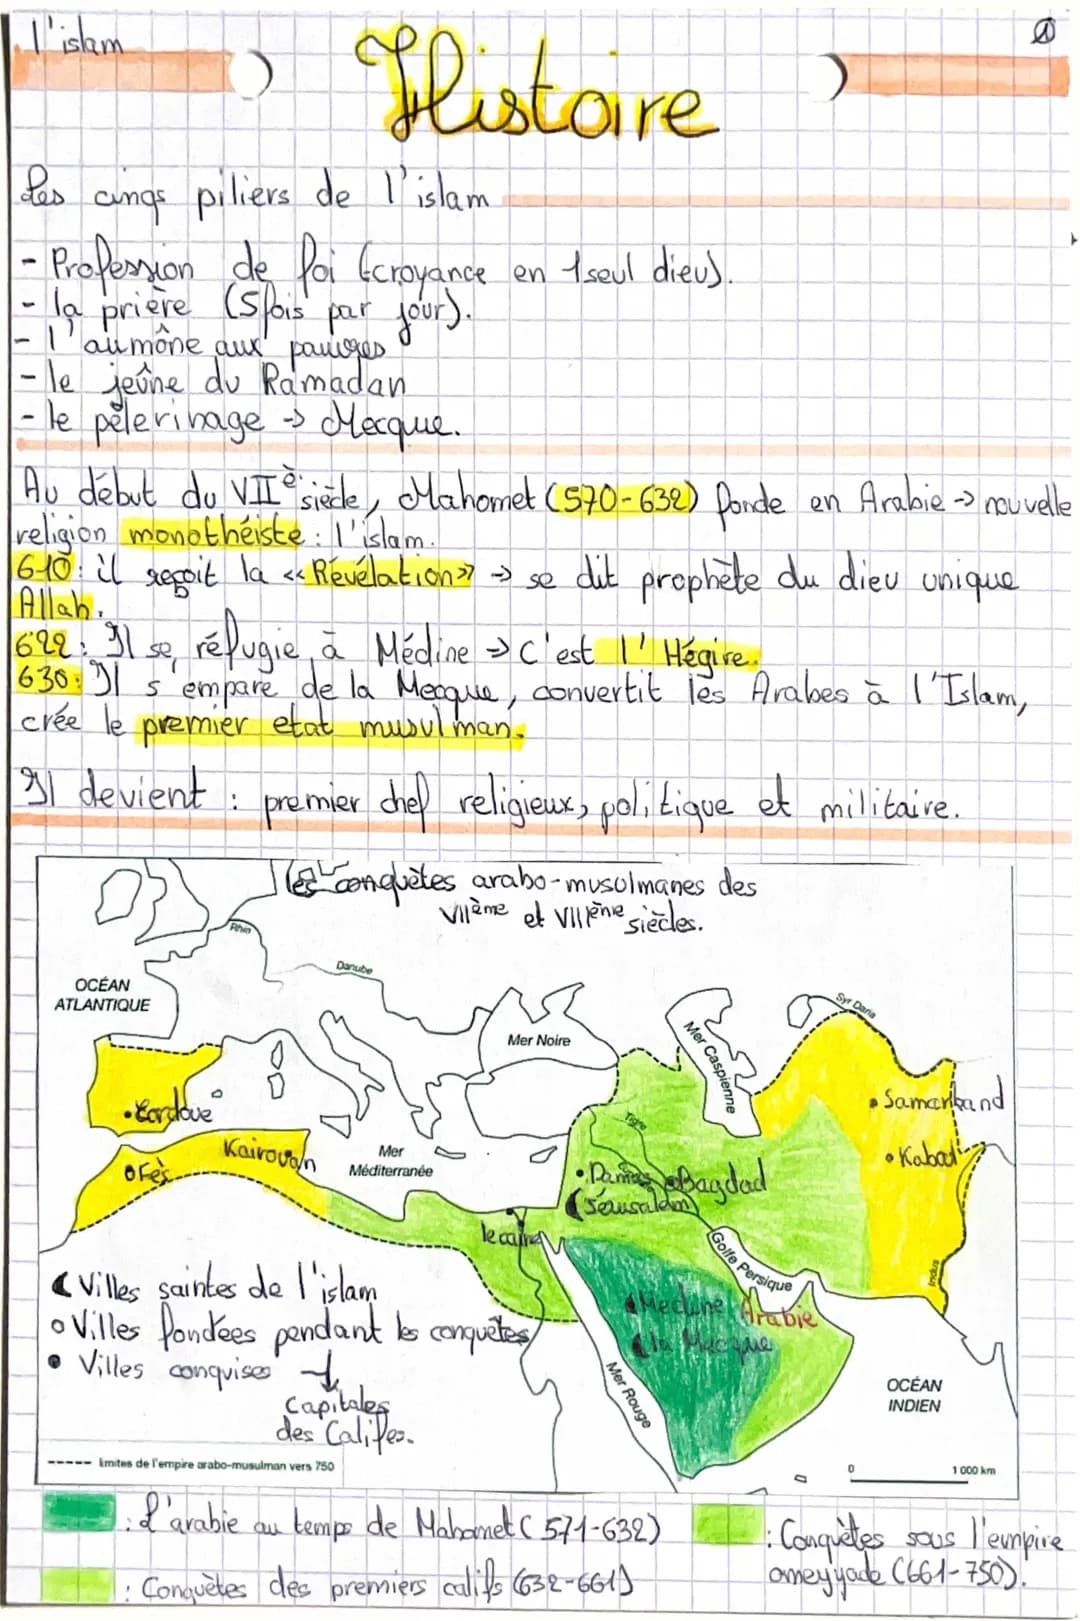 l'islam
1
Histoire
Les cinqs piliers de l'islam
- Profession de foi (croyance en 1 seul dieu).
- la prière (5 fois par jour).
- l'aumône aux pauvres
- le jeûne du Ramadan
- le pèlerinage -> Mecque.
Au début du VIIè siècle, Mahomet (570-632) fonde en Arabie -> nouvelle
religion monothéiste : l'islam.
610 : il reçoit la «Révélation» -> se dit prophète du dieu unique
Allah.
622 : Il se réfugie à Médine -> C'est l'Hégire.
630 : Il s'empare de la Mecque, convertit les Arabes à l'Islam,
crée le premier etat musulman.
Il devient : premier chef religieux, politique et militaire.
les conquètes arabo-musulmanes des
VIIème et VIIIème siècles.
Rhin
Danube
OCÉAN
ATLANTIQUE
Mer Noire
Mer Caspienne
Syr Daria
Cordoue
Samarkand
Kairouan
Fès
Mer
Méditerranée
Tigre
Kaboul
Damas Bagdad
Jérusalem
le caire
Golfe Persique
Indus
Villes saintes de l'islam
Villes fondées pendant les conquètes
Villes conquises
Capitales
des Califes.
Medine Arabie
la Mecque
Mer Rouge
OCÉAN
INDIEN
limites de l'empire arabo-musulman vers 750
0 1 000 km
: L'arabie au temps de Mahomet (571-632)
: Conquètes sous l'empire
omeyyade (661-750).
: Conquètes des premiers califs (632-661)